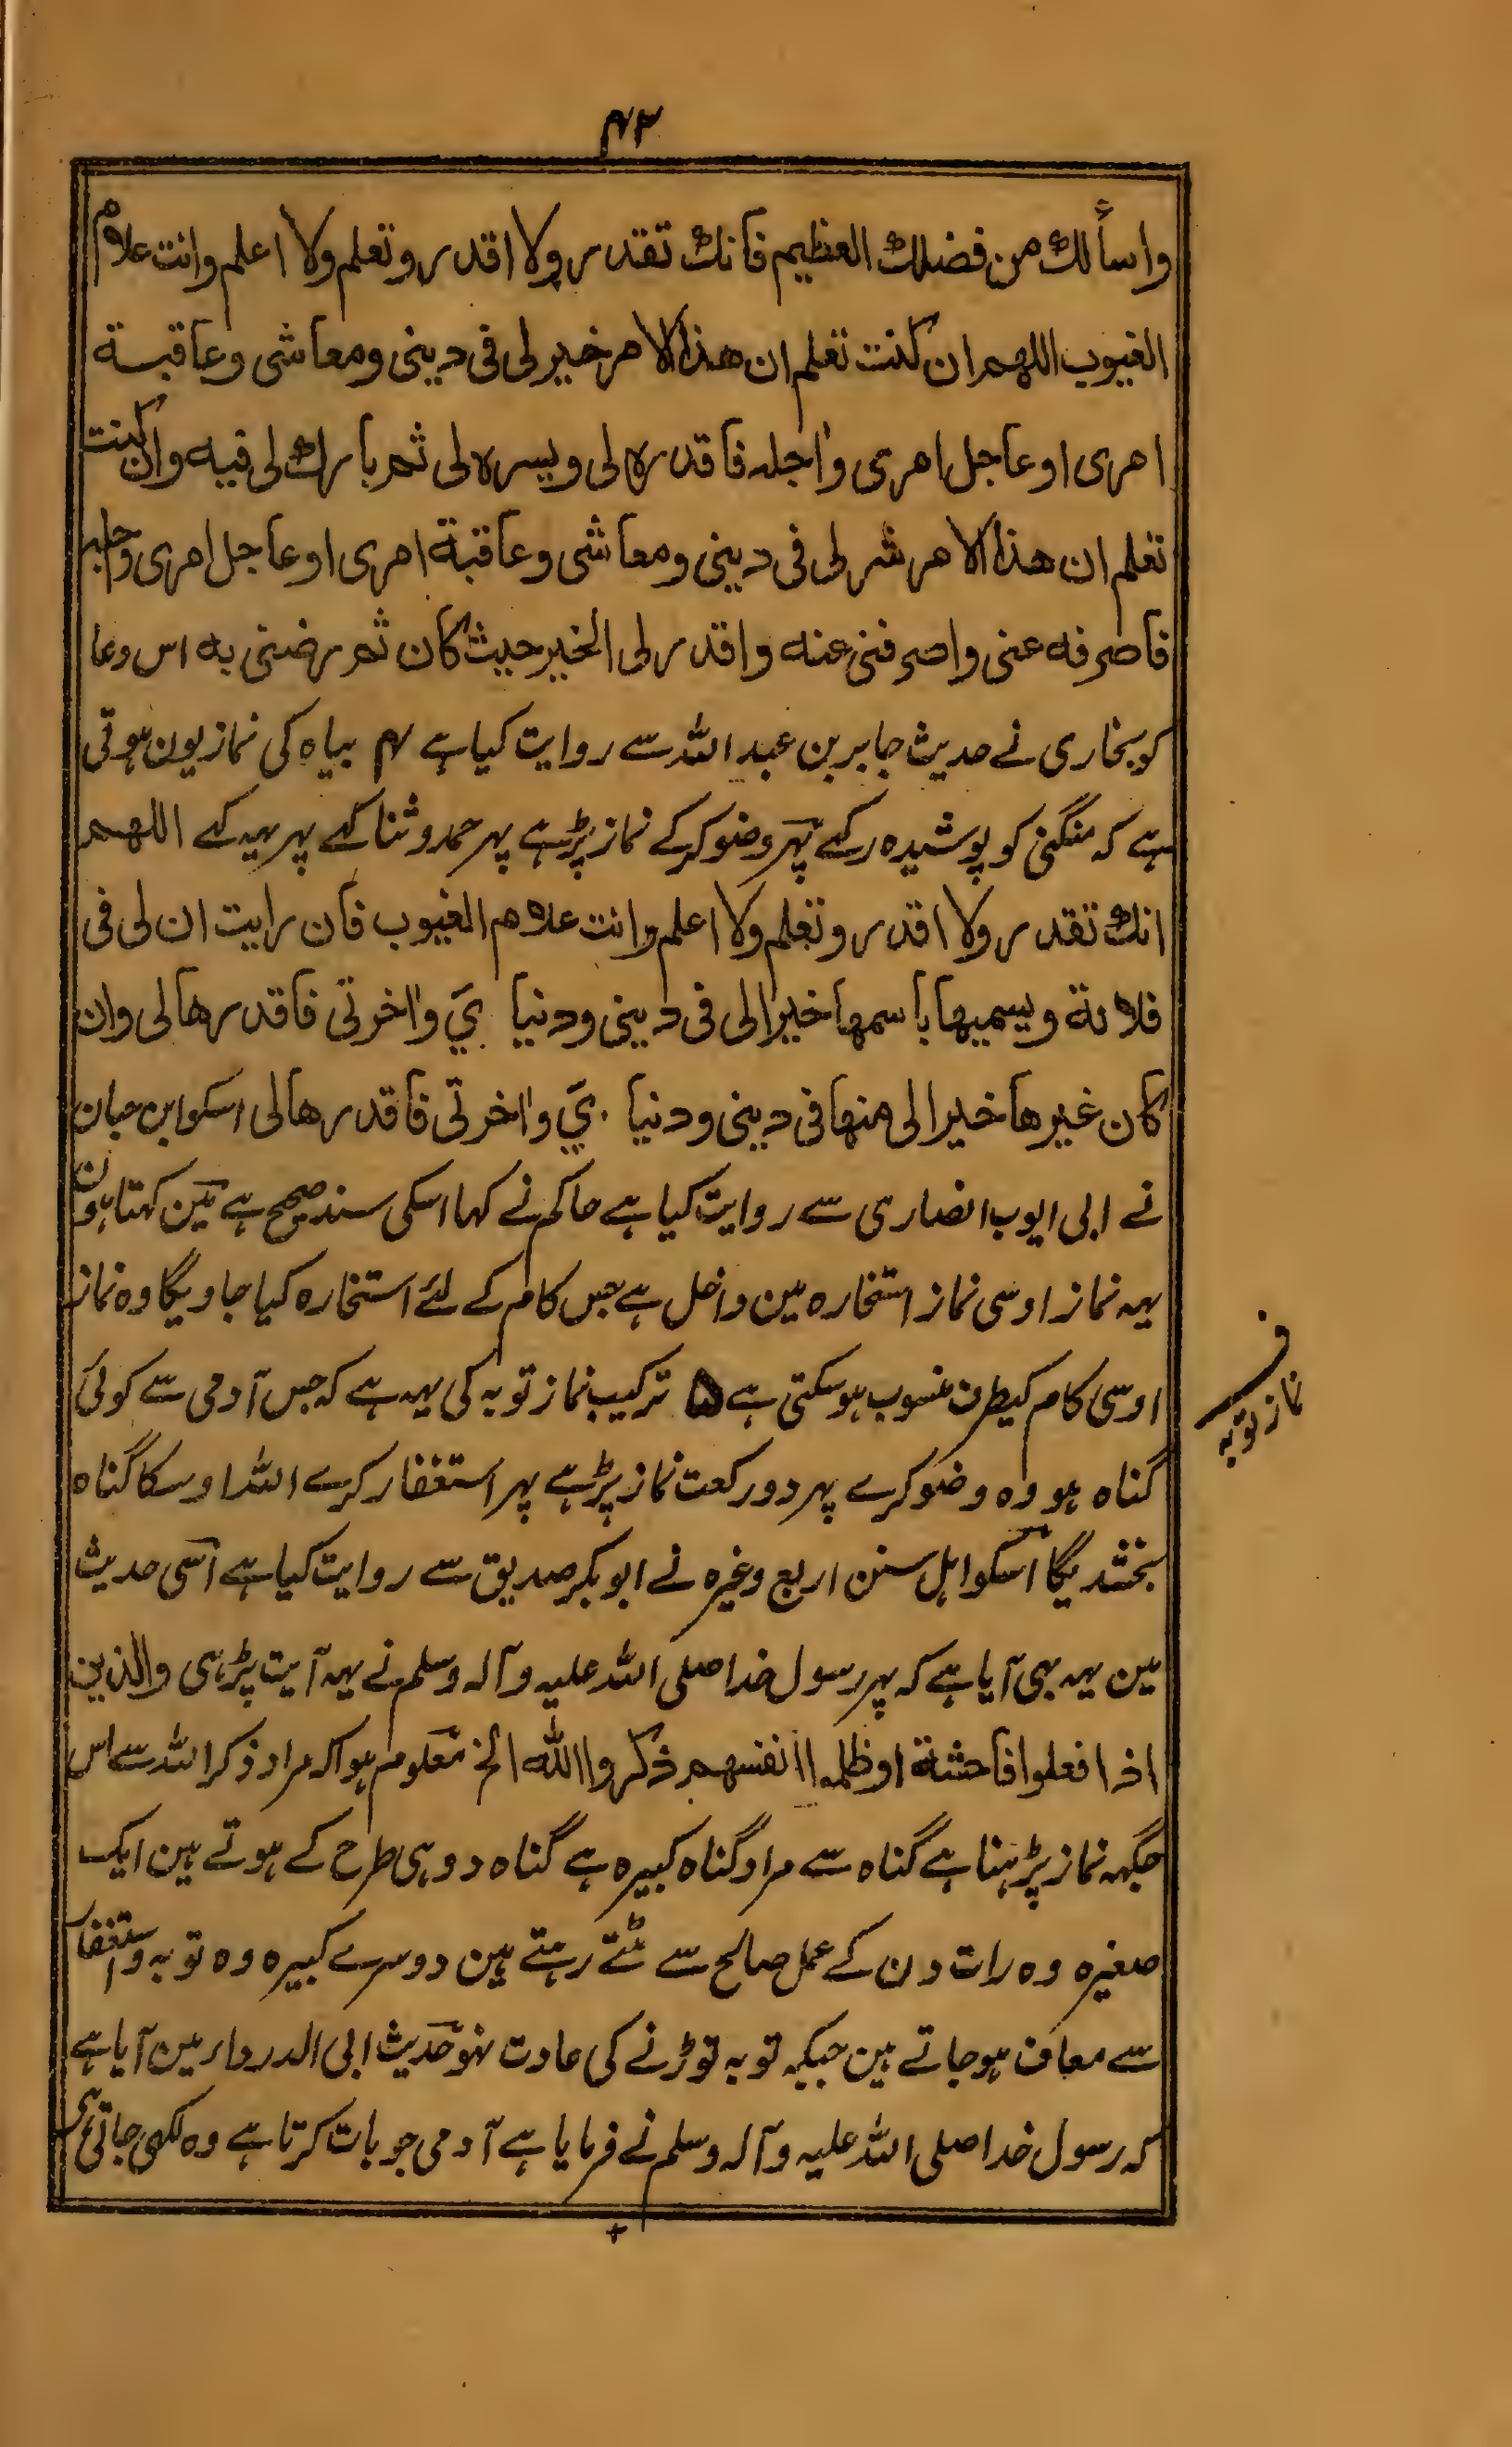 ۴۳
واسألك من فضلك العظيم فانك تقدر ولا اقدر وتعلم ولا اعلم وانت علام
الغيوب اللهم ان كنت تعلم ان هذا الامر خير لى فى دينى ومعاشى وعاقبة
امرى او عاجل امرى واجله فاقدره لى ويسره لى ثم بارك لى فيه وان كنت
تعلم ان هذا الامر شر لى فى دينى ومعاشى وعاقبة امرى او عاجل امرى واجله
فاصرفه عنى واصرفنى عنه واقدر لى الخير حيث كان ثم رضنى به اس دعا
کو بخاری نے حدیث جابر بن عبد اللہ سے روایت کیا ہے ۴ بیاہ کی نماز یون ہوتی
ہے کہ منگنی کو پوشیدہ رکھے پہر وضو کرکے نماز پڑہے پہر حمد وثنا کہے پہر یہہ کہے اللهم
انك تقدر ولا اقدر وتعلم ولا اعلم وانت علام الغيوب فان رايت ان لى فى
فلانة ويسميها باسمها خيرا لى فى دينى ودنياي واخرتى فاقدرها لى وان
كان غيرها خيرا لى منها فى دينى ودنياي واخرتى فاقدرها لى اسکو ابن حبان
نے ابی ایوب انصاری سے روایت کیا ہے حاکم نے کہا اسکی سند صحیح ہے مین کہتا ہون
یہہ نماز اوسی نماز استخارہ مین داخل ہے جس کام کے لئے استخارہ کیا جاویگا وہ نماز
اوسی کام کیطرف منسوب ہوسکتی ہے ۵ ترکیب نماز توبہ کی یہہ ہے کہ جس آدمی سے کوئی
ف
نماز توبہ
گناہ ہو وہ وضو کرے پہر دو رکعت نماز پڑہے پہر استغفار کرے اللہ اوسکا گناہ
بخشدیگا اسکو اہل سنن اربع وغیرہ نے ابو بکر صدیق سے روایت کیا ہے اسی حدیث
مین یہہ بہی آیا ہے کہ پہر رسول خدا صلی اللہ علیہ وآلہ وسلم نے یہہ آیت پڑہی والذين
اذا فعلوا فاحشة او ظلموا انفسهم ذكروا الله الخ معلوم ہوا کہ مراد ذکر اللہ سے اس
جگہہ نماز پڑہنا ہے گناہ سے مراد گناہ کبیرہ ہے گناہ دو ہی طرح کے ہوتے ہین ایک
صغیرہ وہ رات دن کے عمل صالح سے مٹتے رہتے ہین دوسرے کبیرہ وہ توبہ واستغفار
سے معاف ہوجاتے ہین جبکہ توبہ توڑنے کی عادت نہو حدیث ابی الدرداء مین آیا ہے
کہ رسول خدا صلی اللہ علیہ وآلہ وسلم نے فرمایا ہے آدمی جو بات کرتا ہے وہ لکھی جاتی ہی